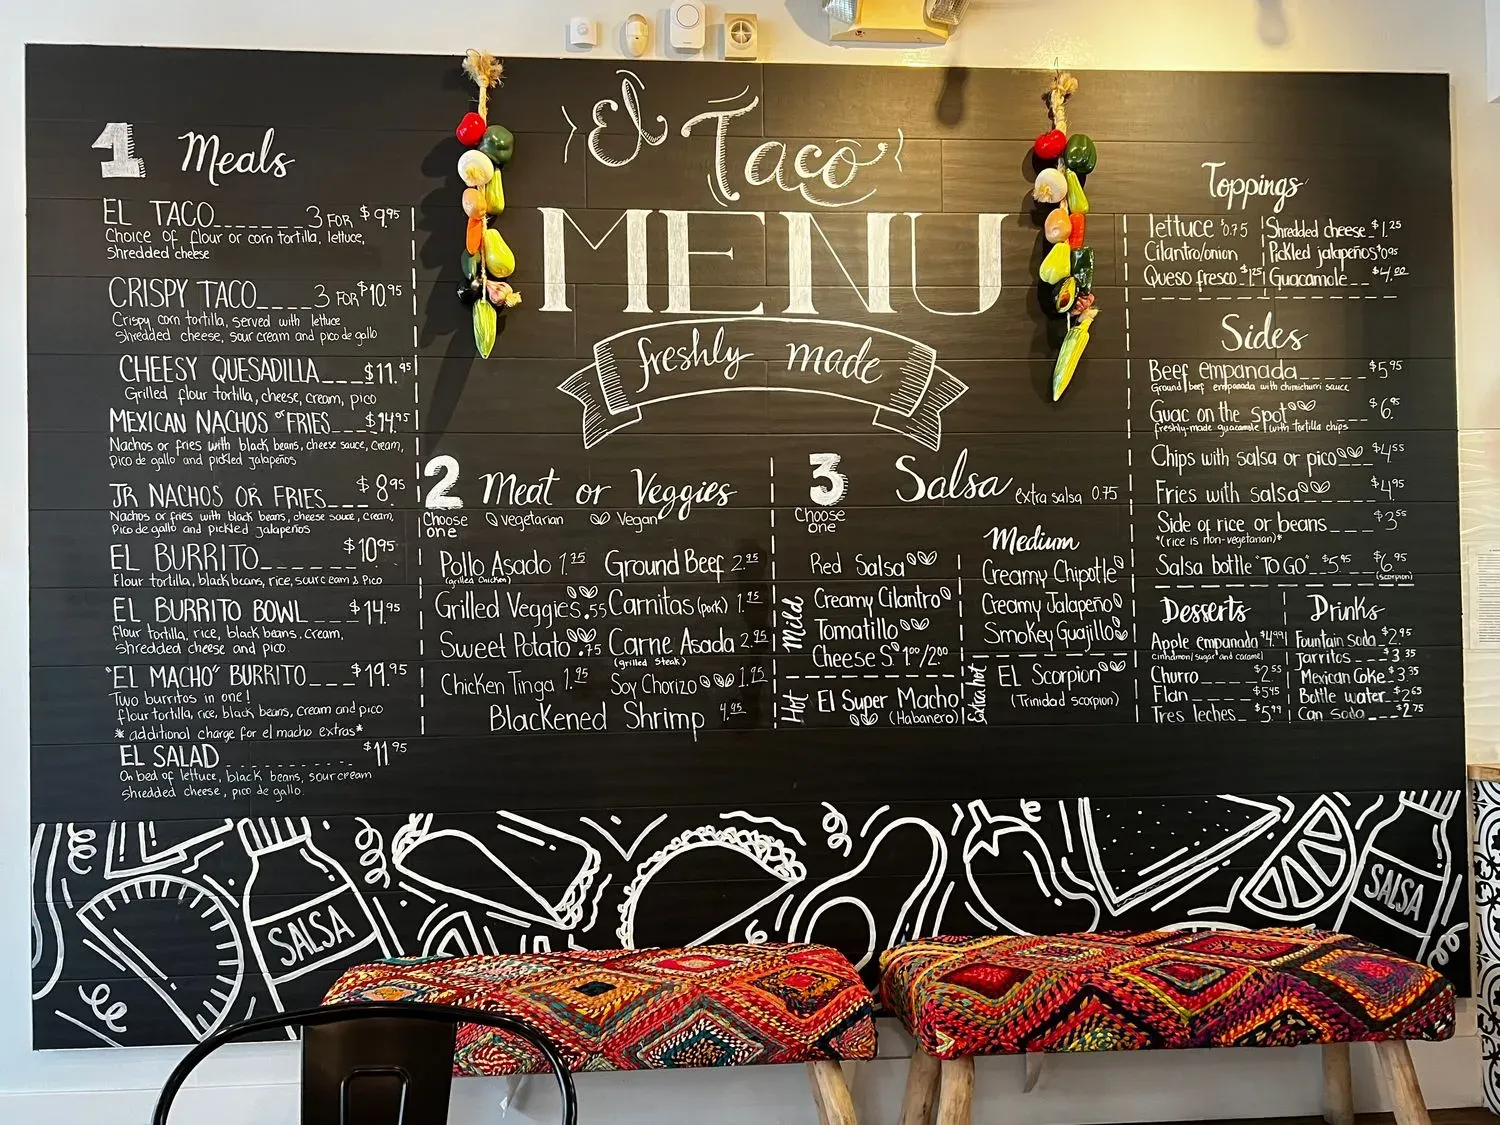 El Taco
MENU
freshly made
1 Meals
EL TACO_______3 FOR $9.95
Choice of flour or corn tortilla, lettuce,
Shredded cheese
CRISPY TACO____3 FOR $10.95
Crispy corn tortilla, served with lettuce
Shredded cheese, sour cream and pico de gallo
CHEESY QUESADILLA___$11.95
Grilled flour tortilla, cheese, cream, pico
MEXICAN NACHOS or FRIES__$14.95
Nachos or fries with black beans, cheese sauce, cream,
pico de gallo and pickled jalapeños
JR NACHOS OR FRIES___$8.95
Nachos or fries with black beans, cheese sauce, cream,
Pico de gallo and pickled jalapeños
EL BURRITO______$10.95
Flour tortilla, black beans, rice, sour cream & Pico
EL BURRITO BOWL___$14.95
flour tortilla, rice, black beans, cream,
Shredded cheese and pico.
"EL MACHO" BURRITO___$19.95
Two burritos in one!
flour tortilla, rice, black beans, cream and pico
* additional charge for el macho extras*
EL SALAD___________$11.95
On bed of lettuce, black beans, sour cream
Shredded cheese, pico de gallo.
2 Meat or Veggies
Choose one
Vegetarian
Vegan
Pollo Asado 1.75
(grilled chicken)
Grilled Veggies .55
Sweet Potato .75
Chicken Tinga 1.95
Ground Beef 2.95
Carnitas (pork) 1.95
Carne Asada 2.95
(grilled steak)
Soy Chorizo 1.95
Blackened Shrimp 4.95
3 Salsa extra salsa 0.75
Choose one
Mild
Red Salsa
Creamy Cilantro
Tomatillo
Cheese S. 1.00/2.00
Medium
Creamy Chipotle
Creamy Jalapeño
Smokey Guajillo
Hot
El Super Macho
(Habanero)
Extra hot
EL Scorpion
(Trinidad scorpion)
Toppings
lettuce $0.75
Cilantro/onion
Queso fresco_$1.25
Shredded cheese_$1.25
Pickled jalapeños $0.95
Guacamole__$4.00
Sides
Beef empanada______$5.95
Ground beef empanada with chimichurri sauce
Guac on the Spot___$6.95
freshly-made guacamole with tortilla chips
Chips with salsa or pico__$4.55
Fries with salsa____$4.95
Side of rice or beans___$3.55
*(rice is non-vegetarian)*
Salsa bottle "TO GO" $5.95__$6.95
(scorpion)
Desserts
Apple empanada $4.99
cinnamon/sugar and caramel
Churro____$2.55
Flan____$5.45
Tres leches_$5.99
Drinks
Fountain Soda $2.95
Jarritos___$3.35
Mexican Coke $3.35
Bottle water_$2.65
Can Soda___$2.75
SALSA
SALSA